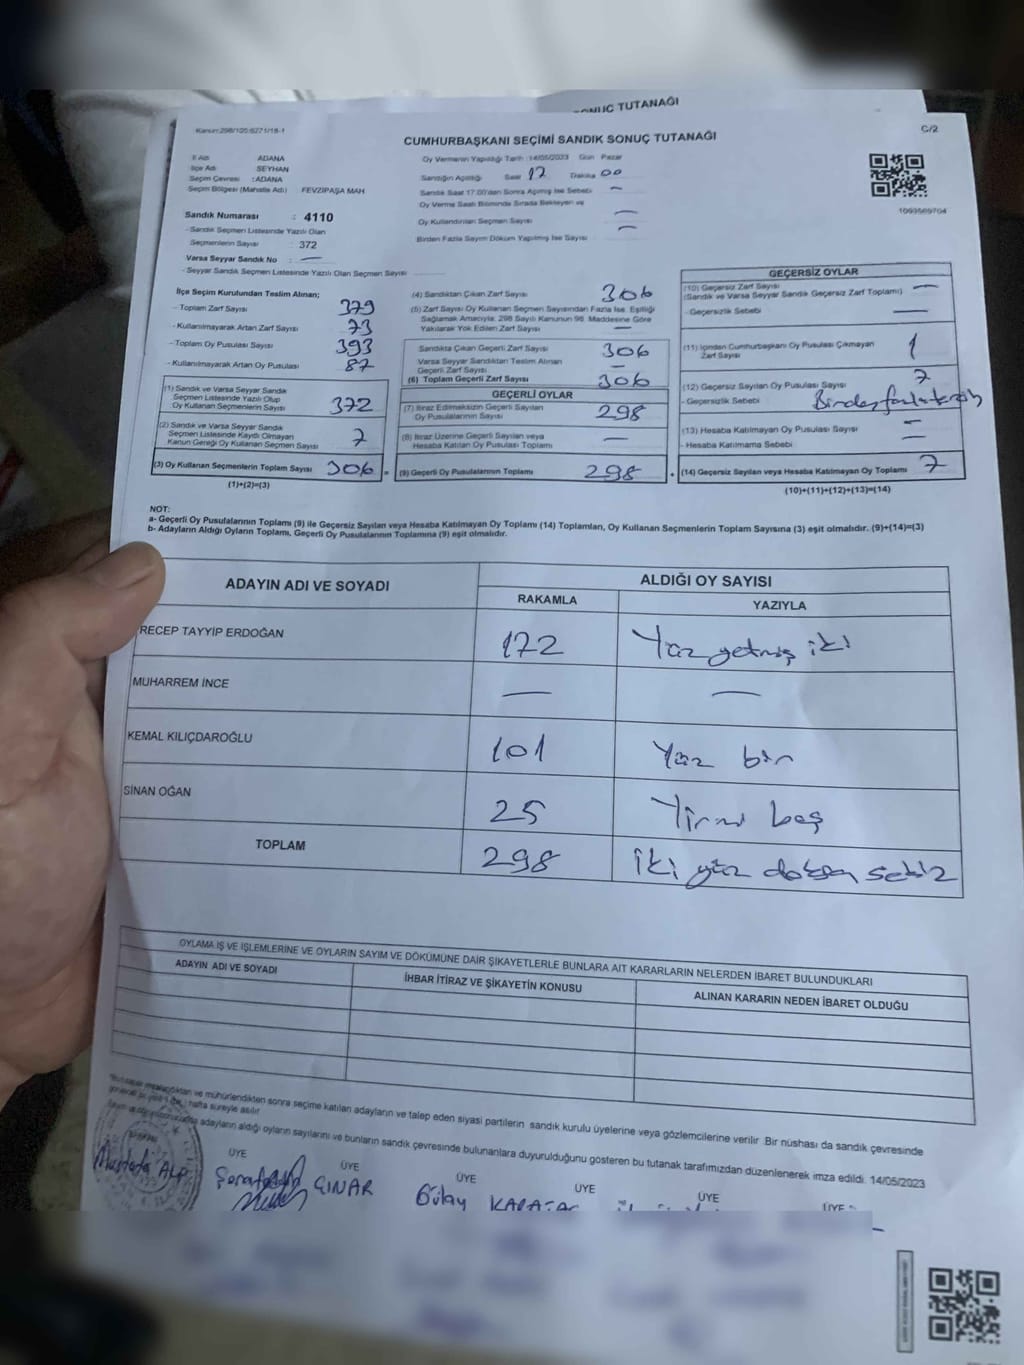 SONUÇ TUTANAĞI
Kanun:298/100:6271/18-1
C/2
CUMHURBAŞKANI SEÇİMİ SANDIK SONUÇ TUTANAĞI
İl Adı ADANA
İlçe Adı SEYHAN
Seçim Çevresi : ADANA
Seçim Bölgesi (Mahalle Adı) FEVZİPAŞA MAH
Sandık Numarası : 4110
- Sandık Seçmen Listesinde Yazılı Olan
Seçmenlerin Sayısı : 372
Varsa Seyyar Sandık No : —
- Seyyar Sandık Seçmen Listesinde Yazılı Olan Seçmen Sayısı
Oy Vermenin Yapıldığı Tarih : 14/05/2023 Gün Pazar
Sandığın Açıldığı Saat 17 Dakika 00
Sandık Saat 17:00'den Sonra Açılmış İse Sebebi —
Oy Verme Saati Bitiminde Sırada Bekleyen ve
Oy Kullandırılan Seçmen Sayısı —
Birden Fazla Sayım Döküm Yapılmış İse Sayısı —
1093569704
İlçe Seçim Kurulundan Teslim Alınan;
- Toplam Zarf Sayısı 379
- Kullanılmayarak Artan Zarf Sayısı 73
- Toplam Oy Pusulası Sayısı 393
- Kullanılmayarak Artan Oy Pusulası 87
(1) Sandık ve Varsa Seyyar Sandık
Seçmen Listesinde Yazılı Olup
Oy Kullanan Seçmenlerin Sayısı 372
(2) Sandık ve Varsa Seyyar Sandık
Seçmen Listesinde Kaydı Olmayan
Kanun Gereği Oy Kullanan Seçmen Sayısı 7
(3) Oy Kullanan Seçmenlerin Toplam Sayısı 306 =
(1)+(2)=(3)
(4) Sandıktan Çıkan Zarf Sayısı 306
(5) Zarf Sayısı Oy Kullanan Seçmen Sayısından Fazla İse, Eşitliği
Sağlamak Amacıyla, 298 Sayılı Kanunun 98. Maddesine Göre
Yakılarak Yok Edilen Zarf Sayısı —
Sandıkta Çıkan Geçerli Zarf Sayısı 306
Varsa Seyyar Sandıktan Teslim Alınan
Geçerli Zarf Sayısı —
(6) Toplam Geçerli Zarf Sayısı 306
GEÇERLİ OYLAR
(7) İtiraz Edilmeksizin Geçerli Sayılan
Oy Pusulalarının Sayısı 298
(8) İtiraz Üzerine Geçerli Sayılan veya
Hesaba Katılan Oy Pusulası Toplamı —
(9) Geçerli Oy Pusulalarının Toplamı 298 +
GEÇERSİZ OYLAR
(10) Geçersiz Zarf Sayısı —
(Sandık ve Varsa Seyyar Sandık Geçersiz Zarf Toplamı)
- Geçersizlik Sebebi —
(11) İçinden Cumhurbaşkanı Oy Pusulası Çıkmayan
Zarf Sayısı 1
(12) Geçersiz Sayılan Oy Pusulası Sayısı 7
- Geçersizlik Sebebi
(13) Hesaba Katılmayan Oy Pusulası Sayısı —
- Hesaba Katılmama Sebebi —
(14) Geçersiz Sayılan veya Hesaba Katılmayan Oy Toplamı 7
(10)+(11)+(12)+(13)=(14)
NOT:
a- Geçerli Oy Pusulalarının Toplamı (9) ile Geçersiz Sayılan veya Hesaba Katılmayan Oy Toplamı (14) Toplamları, Oy Kullanan Seçmenlerin Toplam Sayısına (3) eşit olmalıdır. (9)+(14)=(3)
b- Adayların Aldığı Oyların Toplamı, Geçerli Oy Pusulalarının Toplamına (9) eşit olmalıdır.
ADAYIN ADI VE SOYADI ALDIĞI OY SAYISI
RAKAMLA YAZIYLA
RECEP TAYYİP ERDOĞAN 172 Yüz yetmiş iki
MUHARREM İNCE — —
KEMAL KILIÇDAROĞLU 101 Yüz bir
SİNAN OĞAN 25 Yirmi beş
TOPLAM 298 iki yüz doksan sekiz
OYLAMA İŞ VE İŞLEMLERİNE VE OYLARIN SAYIM VE DÖKÜMÜNE DAİR ŞİKAYETLERLE BUNLARA AİT KARARLARIN NELERDEN İBARET BULUNDUKLARI
ADAYIN ADI VE SOYADI İHBAR İTİRAZ VE ŞİKAYETİN KONUSU ALINAN KARARIN NEDEN İBARET OLDUĞU
imzalandıktan ve mühürlendikten sonra seçime katılan adayların ve talep eden siyasi partilerin sandık kurulu üyelerine veya gözlemcilerine verilir. Bir nüshası da sandık çevresinde
hafta süreyle asılır.
adayların aldığı oyların sayılarını ve bunların sandık çevresinde bulunanlara duyurulduğunu gösteren bu tutanak tarafımızdan düzenlenerek imza edildi. 14/05/2023
ÜYE ÜYE ÜYE ÜYE ÜYE ÜYE
Mustafa ALP ÇINAR Gülay